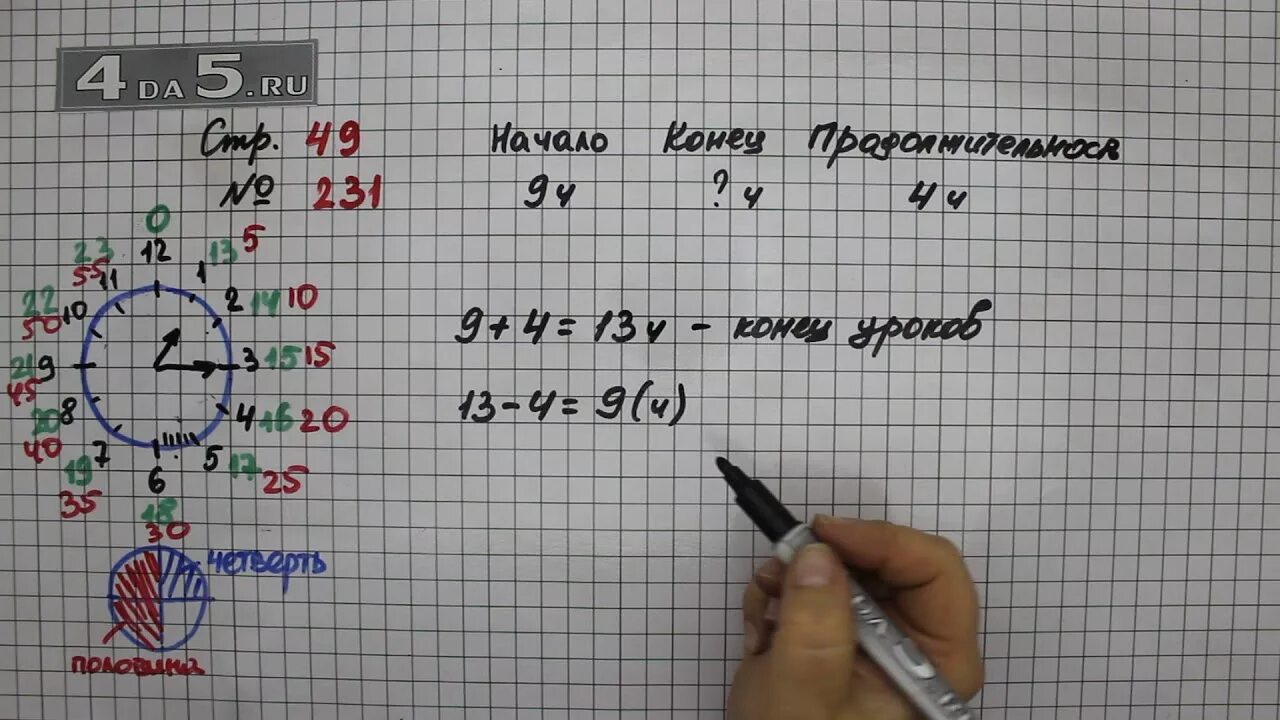 4DA5.RU
Стр. 49 Начало Конец Продолжительност
№ 231 9ч ? ч 4 ч
0
23 12 13 5
55 11 1
22 10 2 14 10
50
21 9 3 15 15
45
20 8 4 16 20
40 7 5 17 25
19 6
35 18
30
9 + 4 = 13 ч - конец уроков
13 - 4 = 9 (ч)
четверть
половина
DA